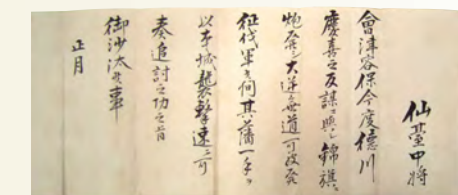 仙臺中将
會津容保今度徳川
慶喜之反謀ニ與し錦旗ニ
炮發し大逆無道可被發
征伐軍候間其藩一手ヲ
以本城襲撃速ニ可
奏追討之功之旨
御沙汰候事
正月